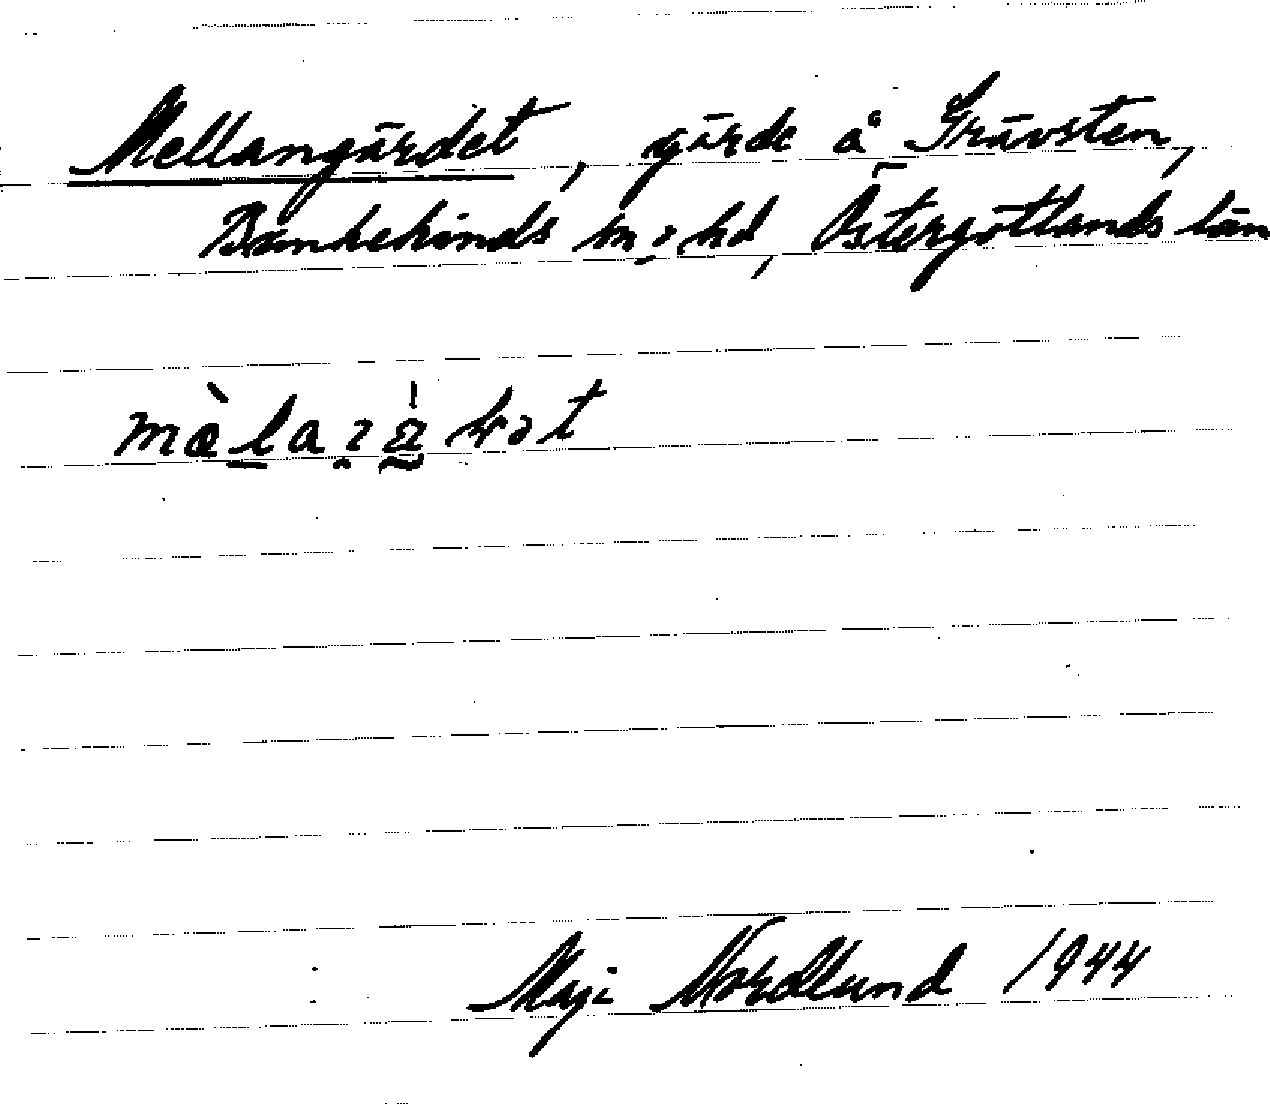 Mellangärdet, gärde å Grävsten,
Bankekinds sn o hd, Östergötlands län
Maji Nordlund 1944